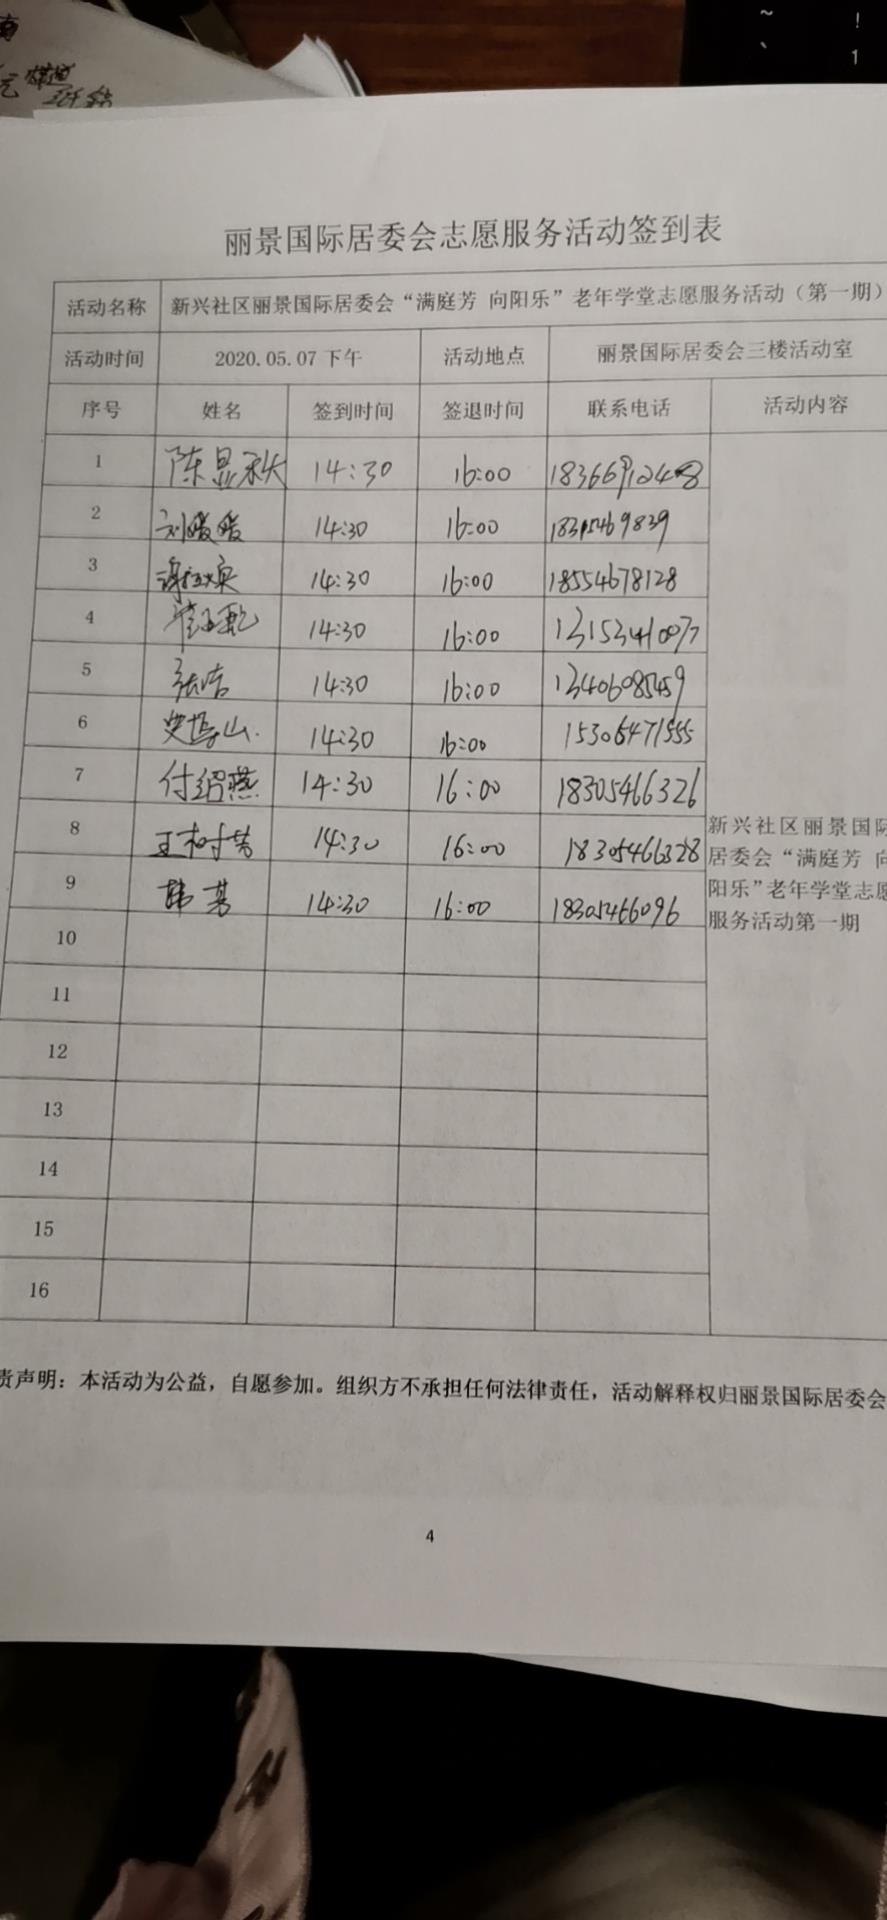 丽景国际居委会志愿服务活动签到表
活动名称 新兴社区丽景国际居委会“满庭芳 向阳乐”老年学堂志愿服务活动（第一期）
活动时间 2020.05.07下午 活动地点 丽景国际居委会三楼活动室
序号 姓名 签到时间 签退时间 联系电话 活动内容
1 陈显秋 14:30 16:00
2 刘媛媛 14:30 16:00 18315469839
3 14:30 16:00 18554678128
4 14:30 16:00
5 张洁 14:30 16:00 13406085459
6 14:30 16:00 15306471555
7 付绍燕 14:30 16:00 18305466326
8 王树芳 14:30 16:00 18305466328
9 韩 14:30 16:00 18305466096
新兴社区丽景国际
居委会“满庭芳 向
阳乐”老年学堂志愿
服务活动第一期
10
11
12
13
14
15
16
责声明：本活动为公益，自愿参加。组织方不承担任何法律责任，活动解释权归丽景国际居委会
4